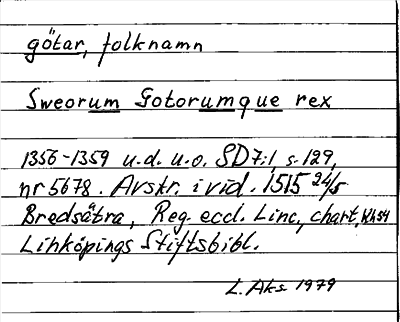 götar, folknamn
Sweorum Gotorumque rex
1356-1359 u.d. u.o. SD 7:1 s. 129,
nr 5678. Avskr. i vid. 1515 24/5
Bredsätra, Reg. eccl. Linc, chart,
Linköpings Stiftsbibl.
L. Aks 1979